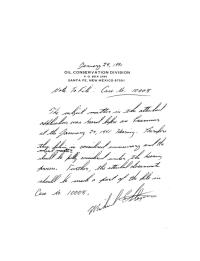 January 29, 1991
OIL CONSERVATION DIVISION
P. O. BOX 2088
SANTA FE, NEW MEXICO 87501
Note to File. Case No. 10008
The subject matter in the attached
application was heard before an Examiner
at the January 24, 1991 Hearing. Therefore
they
subject matter is considered unnecessary and the
shall be fully considered under the hearing
process. Further, the attached documents
shall be made a part of the file in
Case No. 10008.
Michael E. Stogner